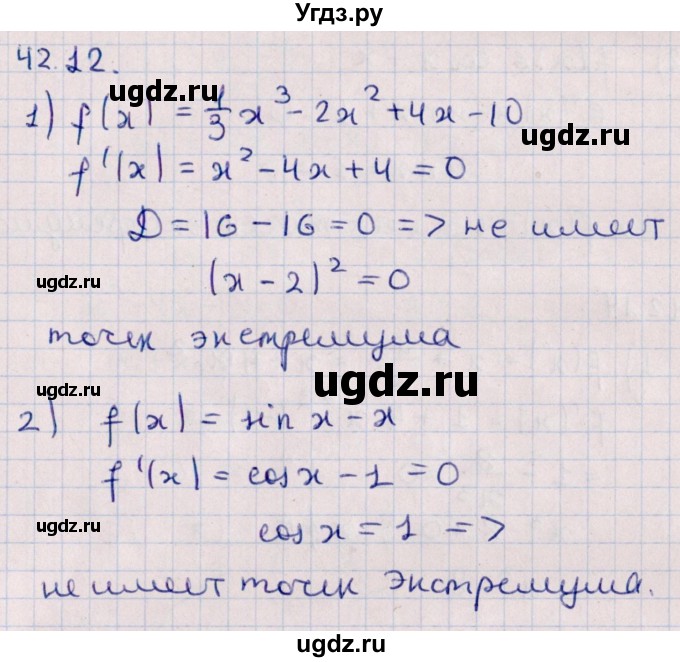 Угдз.ру
42.12.
ugdz.ru
1) f(x) = 1/3 x³ - 2x² + 4x - 10
f'(x) = x² - 4x + 4 = 0
ugdz.ru
D = 16 - 16 = 0 => не имеет
ugdz.ru ugdz.ru
(x - 2)² = 0
точек экстремума
ugdz.ru
ugdz.ru
2) f(x) = sin x - x
f'(x) = cos x - 1 = 0
ugdz.ru ugdz.ru
cos x = 1 =>
не имеет точек экстремума.
ugdz.ru